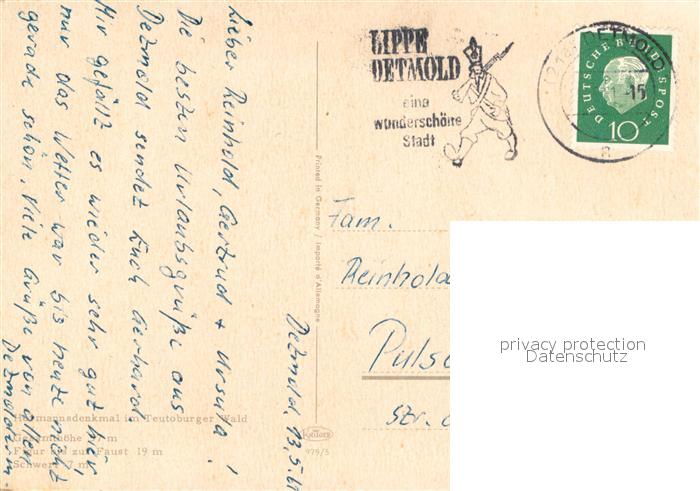 Lieber Reinhold, Gertrud + Ursula!
Die besten Urlaubsgrüße aus
Detmold sendet Euch Gerhard
Mir gefällt es wieder sehr gut hier,
nur das Wetter war bis heute nicht
gerade schön. Viele Grüße von allen
Detmoldern.
Detmold, 13.5.61
LIPPE
DETMOLD
eine
wunderschöne
Stadt
DETMOLD
15
DEUTSCHE BUNDESPOST
10
Printed in Germany / Importé d'Allemagne
Fam.
Reinhold
Puls
Str. d
privacy protection
Datenschutz
Hermannsdenkmal im Teutoburger Wald
Gesamthöhe 57 m
Figur bis zur Faust 19 m
Schwert 7 m
979/5